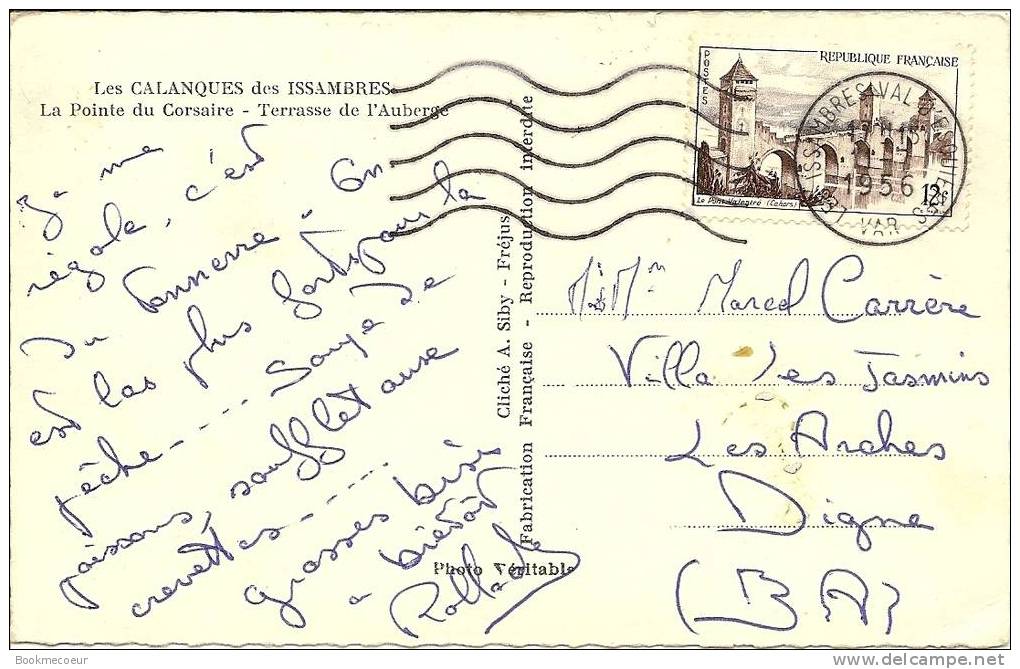 Les CALANQUES des ISSAMBRES
La Pointe du Corsaire - Terrasse de l'Auberge
Je me
régale, c'est
du tonnerre ! on
est les plus forts pour la
pêche---- Soupe de
poissons, soufflet aux
crevettes----
grosses bises
à bientôt
Photo Véritable
Cliché A. Siby - Fréjus
Fabrication Française - Reproduction interdite
POSTES
REPUBLIQUE FRANÇAISE
Le Pont Valentré (Cahors)
12f
LES ISSAMBRES VAL D'ESQUIERES
1956
VAR
M. & Mme Marcel Carrère
Villa les Jasmins
Les Arches
Digne
(BA)
Bookmecoeur
delcampe.net